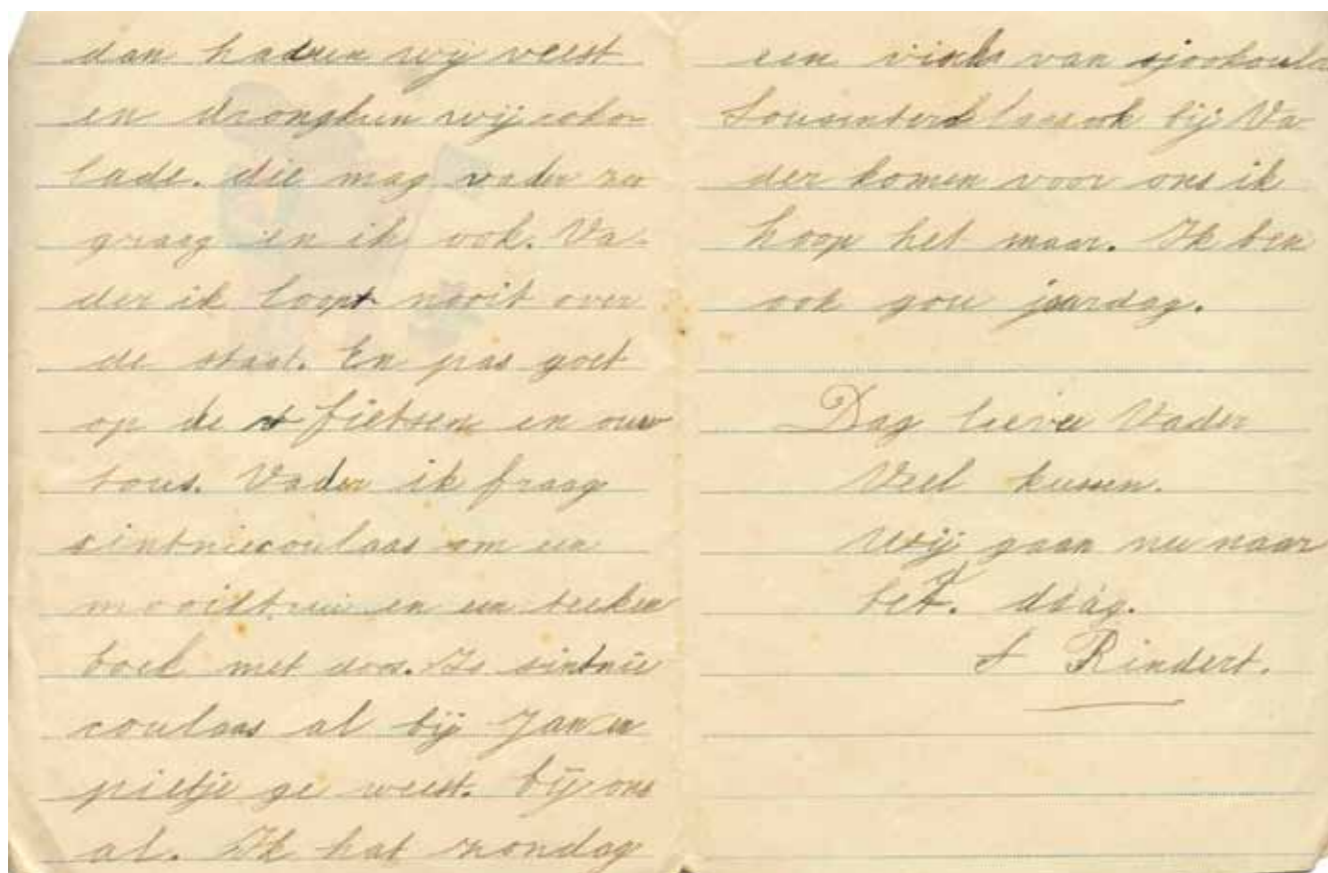 dan hadden wij veest
en drongken wij coko-
lade. die mag vader zoo
graag en ik ook. Va-
der ik loopt nooit over
de staat. En pas goet
op de fietsen en ouw
tous. Vader ik fraag
sintniecoulaas om een
mooi en een teeken
boek met doos. Is sintnie
coulaas al bij Jan en
pietje ge weest. bij ons
al. Ik hat zondag
een van
ook bij Va-
der komen voor ons ik
hoop het maar. Ik ben
ook gou jaardag.
Dag lieve Vader
Veel kussen.
wij gaan nu naar
bet. dáág.
Rindert.